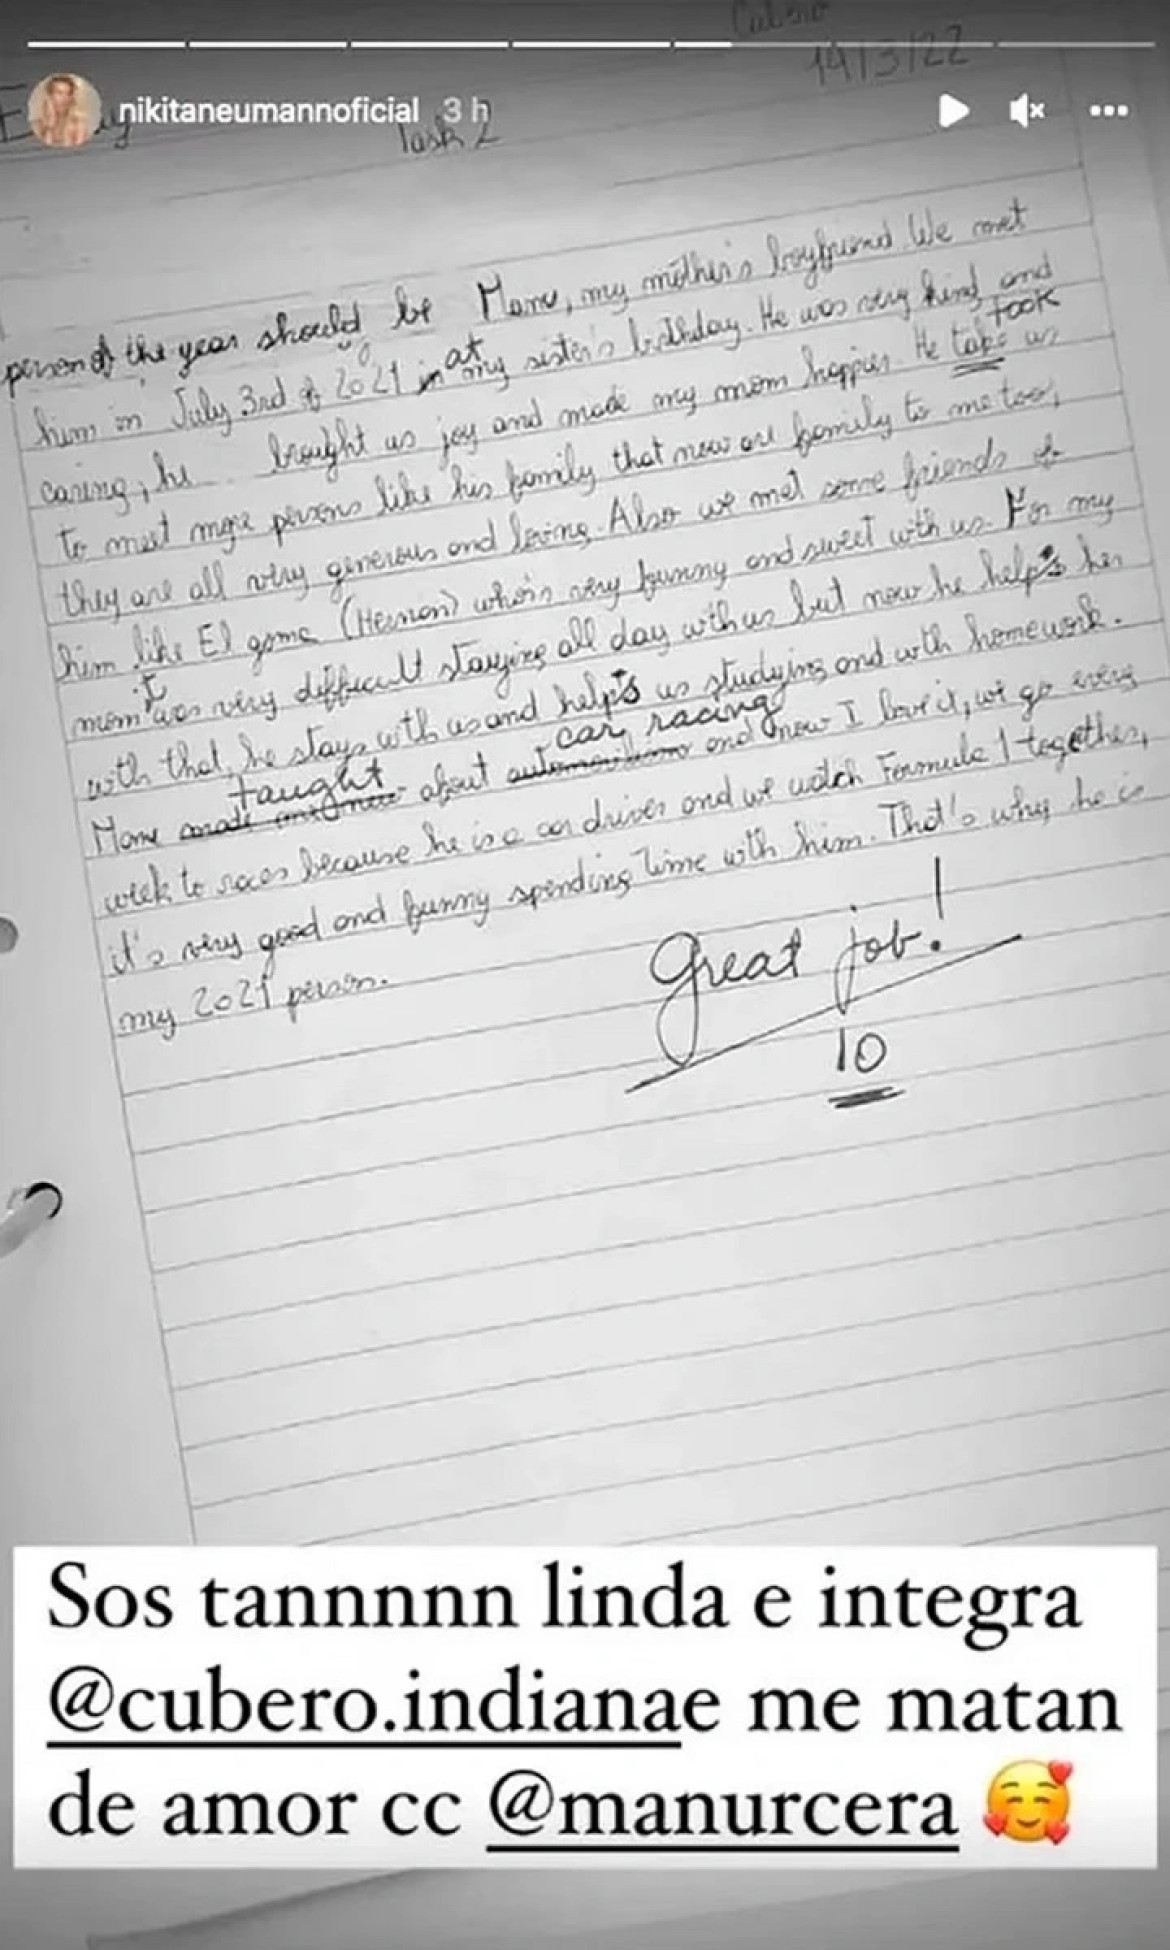 Cubero
14/3/22
nikitaneumannoficial 3 h
Task 2
person of the year should be Manu, my mother's boyfriend. We met
him in July 3rd of 2021 in at my sister's birthday. He was very kind and
caring, he brought us joy and made my mom happier. He take took us
to meet more persons like his family that now are family to me too,
they are all very generous and loving. Also we met some friends of
him like El goma (Hernan) who's very funny and sweet with us. For my
mom it was very difficult staying all day with us but now he helps her
with that, he stays with us and helps us studying and with homework.
Manu made taught about automovilismo car racing and now I love it, we go every
week to races because he is a car driver and we watch Formula 1 together,
it's very good and funny spending time with him. That's why he is
my 2021 person.
Great job!
10
Sos tannnnnn linda e integra
@cubero.indianae me matan
de amor cc @manurcera 🥰